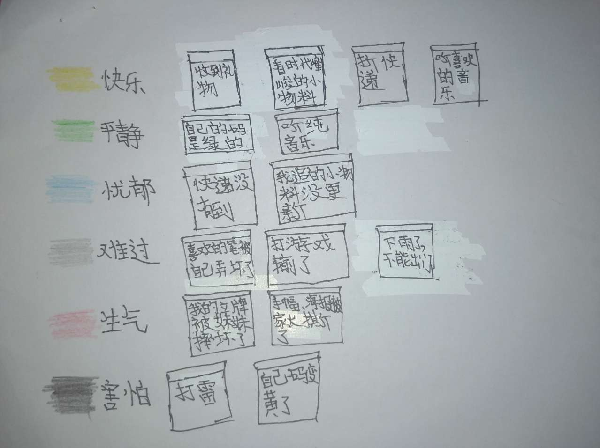 快乐
收到礼
物
看时代煌
峻的小
物料
拆快
递
听喜欢
的音
乐
平静
自己的码
是绿的
听纯
音乐
忧郁
快递没
有到
我追的小物
料没更
新了
难过
喜欢的笔被
自己弄坏了
打游戏
输了
下雨了
不能出门
生气
我的
被妹妹
摔坏了
了
害怕
打雷
自己码变
黄了